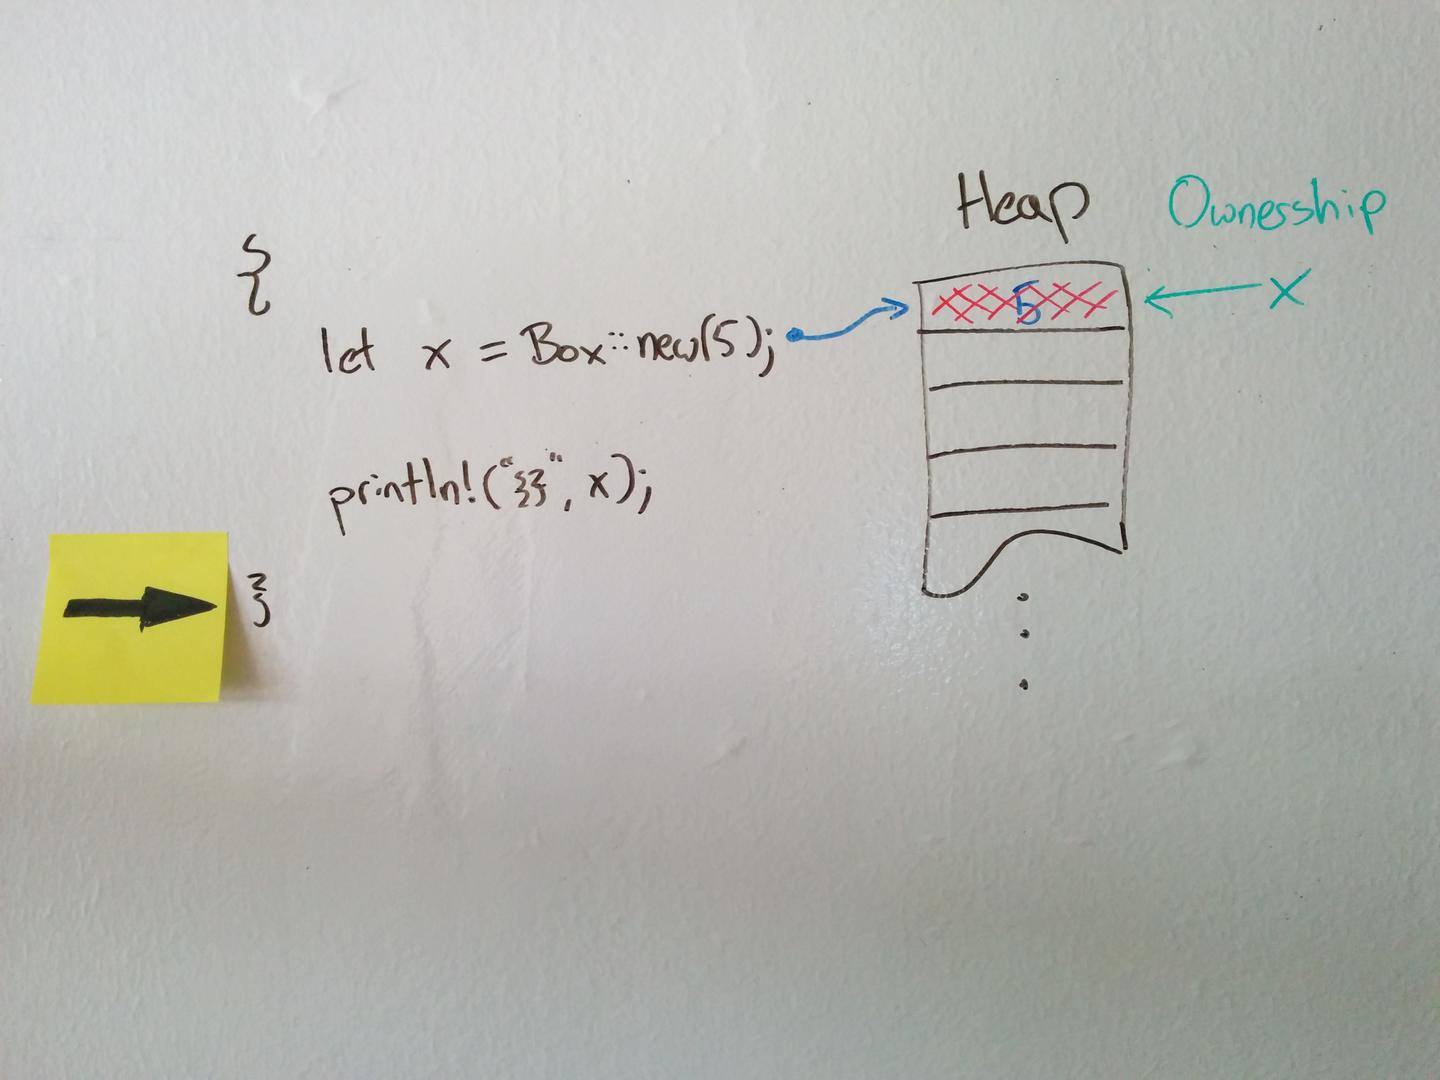 {
let x = Box::new(5);
println!("{}", x);
}
Heap
5
Ownership
x